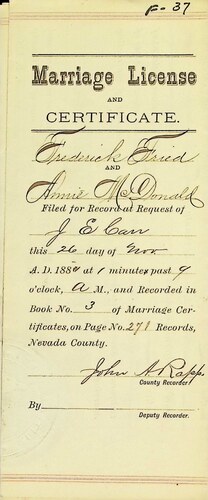 F-37
Marriage License
AND
CERTIFICATE.
Frederick Fried
AND
Annie McDonald
Filed for Record at Request of
J E Carr
this 26 day of Nov
A. D. 188 at 1 minutes past 9
o'clock, A M., and Recorded in
Book No. 3 of Marriage Cer-
tificates, on Page No. 278 Records,
Nevada County.
John A Rapp
County Recorder.
By
Deputy Recorder.